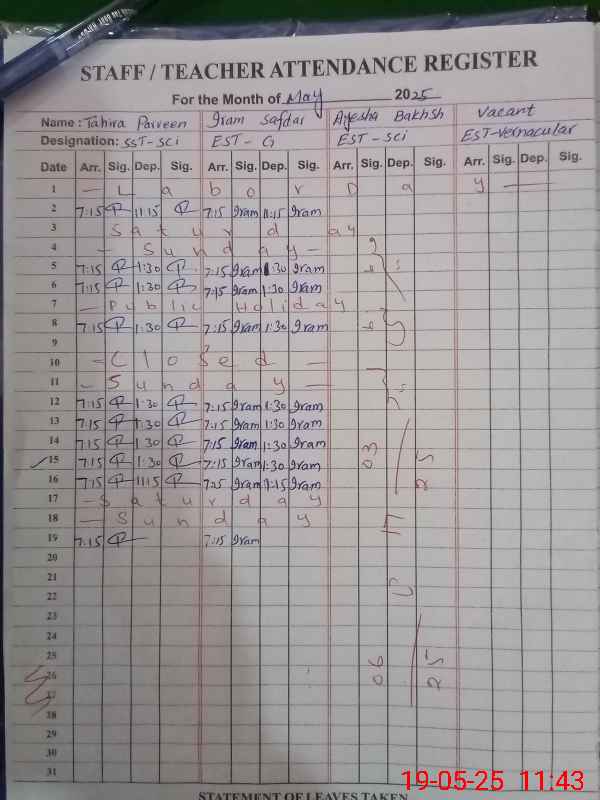 STAFF / TEACHER ATTENDANCE REGISTER
For the Month of May 2025
Name : Tahira Parveen Iram Safdar Ayesha Bakhsh Vacant
Designation: SST-Sci EST - G EST - Sci EST-Vernacular
Date Arr. Sig. Dep. Sig. Arr. Sig. Dep. Sig. Arr. Sig. Dep. Sig. Arr. Sig. Dep. Sig.
1 — Labor Day —
2 7:15 11:15 7:15 Iram 11:15 Iram
3 Saturday
4 — Sunday —
5 7:15 1:30 7:15 Iram 1:30 Iram
6 7:15 1:30 7:15 Iram 1:30 Iram
7 — Public Holiday
8 7:15 1:30 7:15 Iram 1:30 Iram
9
10 — Closed —
11 — Sunday —
12 7:15 1:30 7:15 Iram 1:30 Iram
13 7:15 1:30 7:15 Iram 1:30 Iram
14 7:15 1:30 7:15 Iram 1:30 Iram
15 7:15 1:30 7:15 Iram 1:30 Iram
16 7:15 11:15 7:15 Iram 11:15 Iram
17 — Saturday
18 — Sunday
19 7:15 7:15 Iram
20
21
22
23
24
25
26
27
28
29
30
31
STATEMENT OF LEAVES TAKEN
19-05-25 11:43